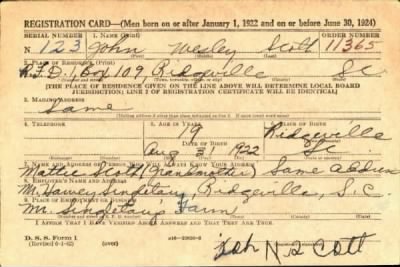 REGISTRATION CARD—(Men born on or after January 1, 1922 and on or before June 30, 1924)
SERIAL NUMBER 1. NAME (Print) ORDER NUMBER
N 123 John Wesley Scott 11365
2. PLACE OF RESIDENCE (Print)
R.F.D. 1 Box 109, Ridgeville SC
[THE PLACE OF RESIDENCE GIVEN ON THE LINE ABOVE WILL DETERMINE LOCAL BOARD
JURISDICTION; LINE 2 OF REGISTRATION CERTIFICATE WILL BE IDENTICAL]
3. MAILING ADDRESS
Same
4. TELEPHONE 5. AGE IN YEARS 6. PLACE OF BIRTH
19 Ridgeville
DATE OF BIRTH
Aug 31 1922 SC
7. NAME AND ADDRESS OF PERSON WHO WILL ALWAYS KNOW YOUR ADDRESS
Mattie Scott (Grandmother) Same Address
8. EMPLOYER'S NAME AND ADDRESS
Singletary, Ridgeville, S.C.
9. PLACE OF EMPLOYMENT OR BUSINESS
Mr. Singletary Farm
I AFFIRM THAT I HAVE VERIFIED ABOVE ANSWERS AND THAT THEY ARE TRUE.
D. S. S. Form 1
(Revised 6-1-42) (over)
John N S cott